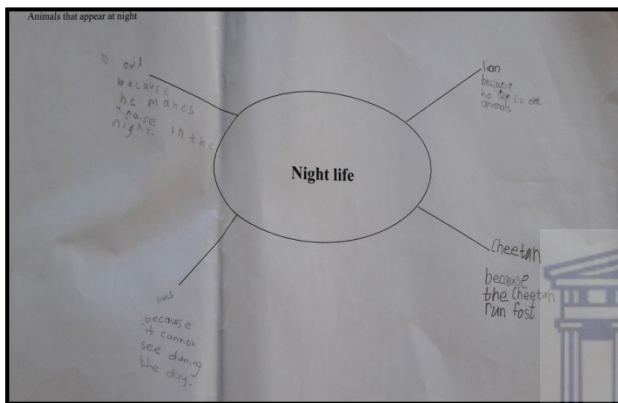 Animals that appear at night
owl
because
he makes
noise in the
night.
lion
because
he
animals
Night life
Cheetah
because
the Cheetah
run fast
because
it cannot
see during
the day.